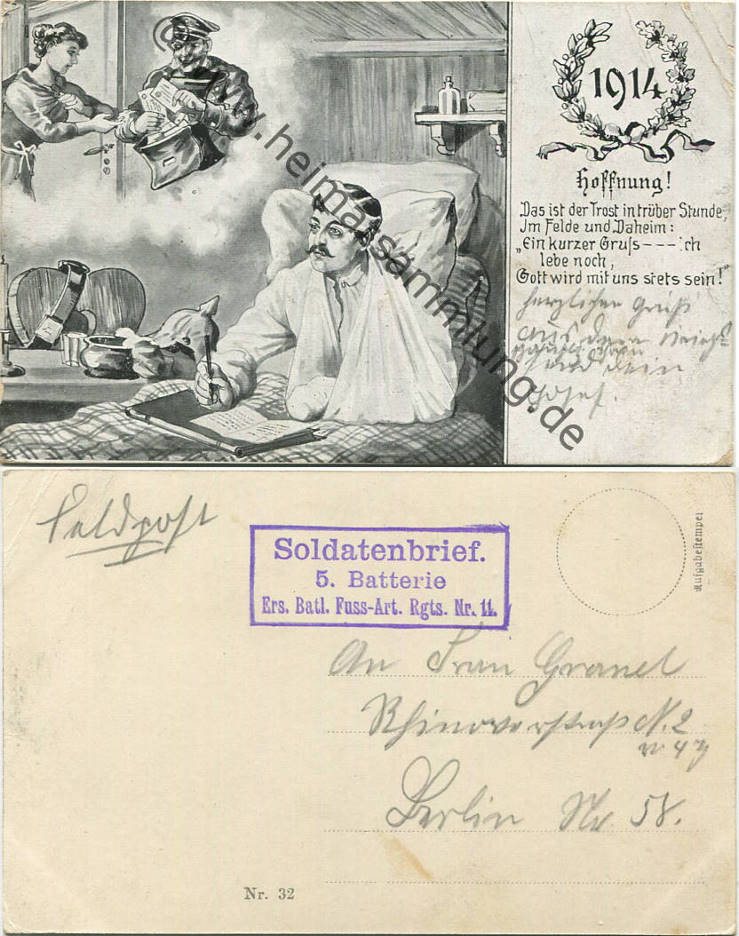 1914
Hoffnung!
Das ist der Trost in trüber Stunde,
Im Felde und Daheim:
"Ein kurzer Gruss --- ich
lebe noch,
Gott wird mit uns stets sein!"
herzlichen Gruß
aus dem
und dein
Josef.
© www.heimatsammlung.de
Feldpost
Soldatenbrief.
5. Batterie
Ers. Batl. Fuss-Art. Rgts. Nr. 11.
Aufgabestempel
An Frau Granel
N. 2
Berlin No 58.
Nr. 32